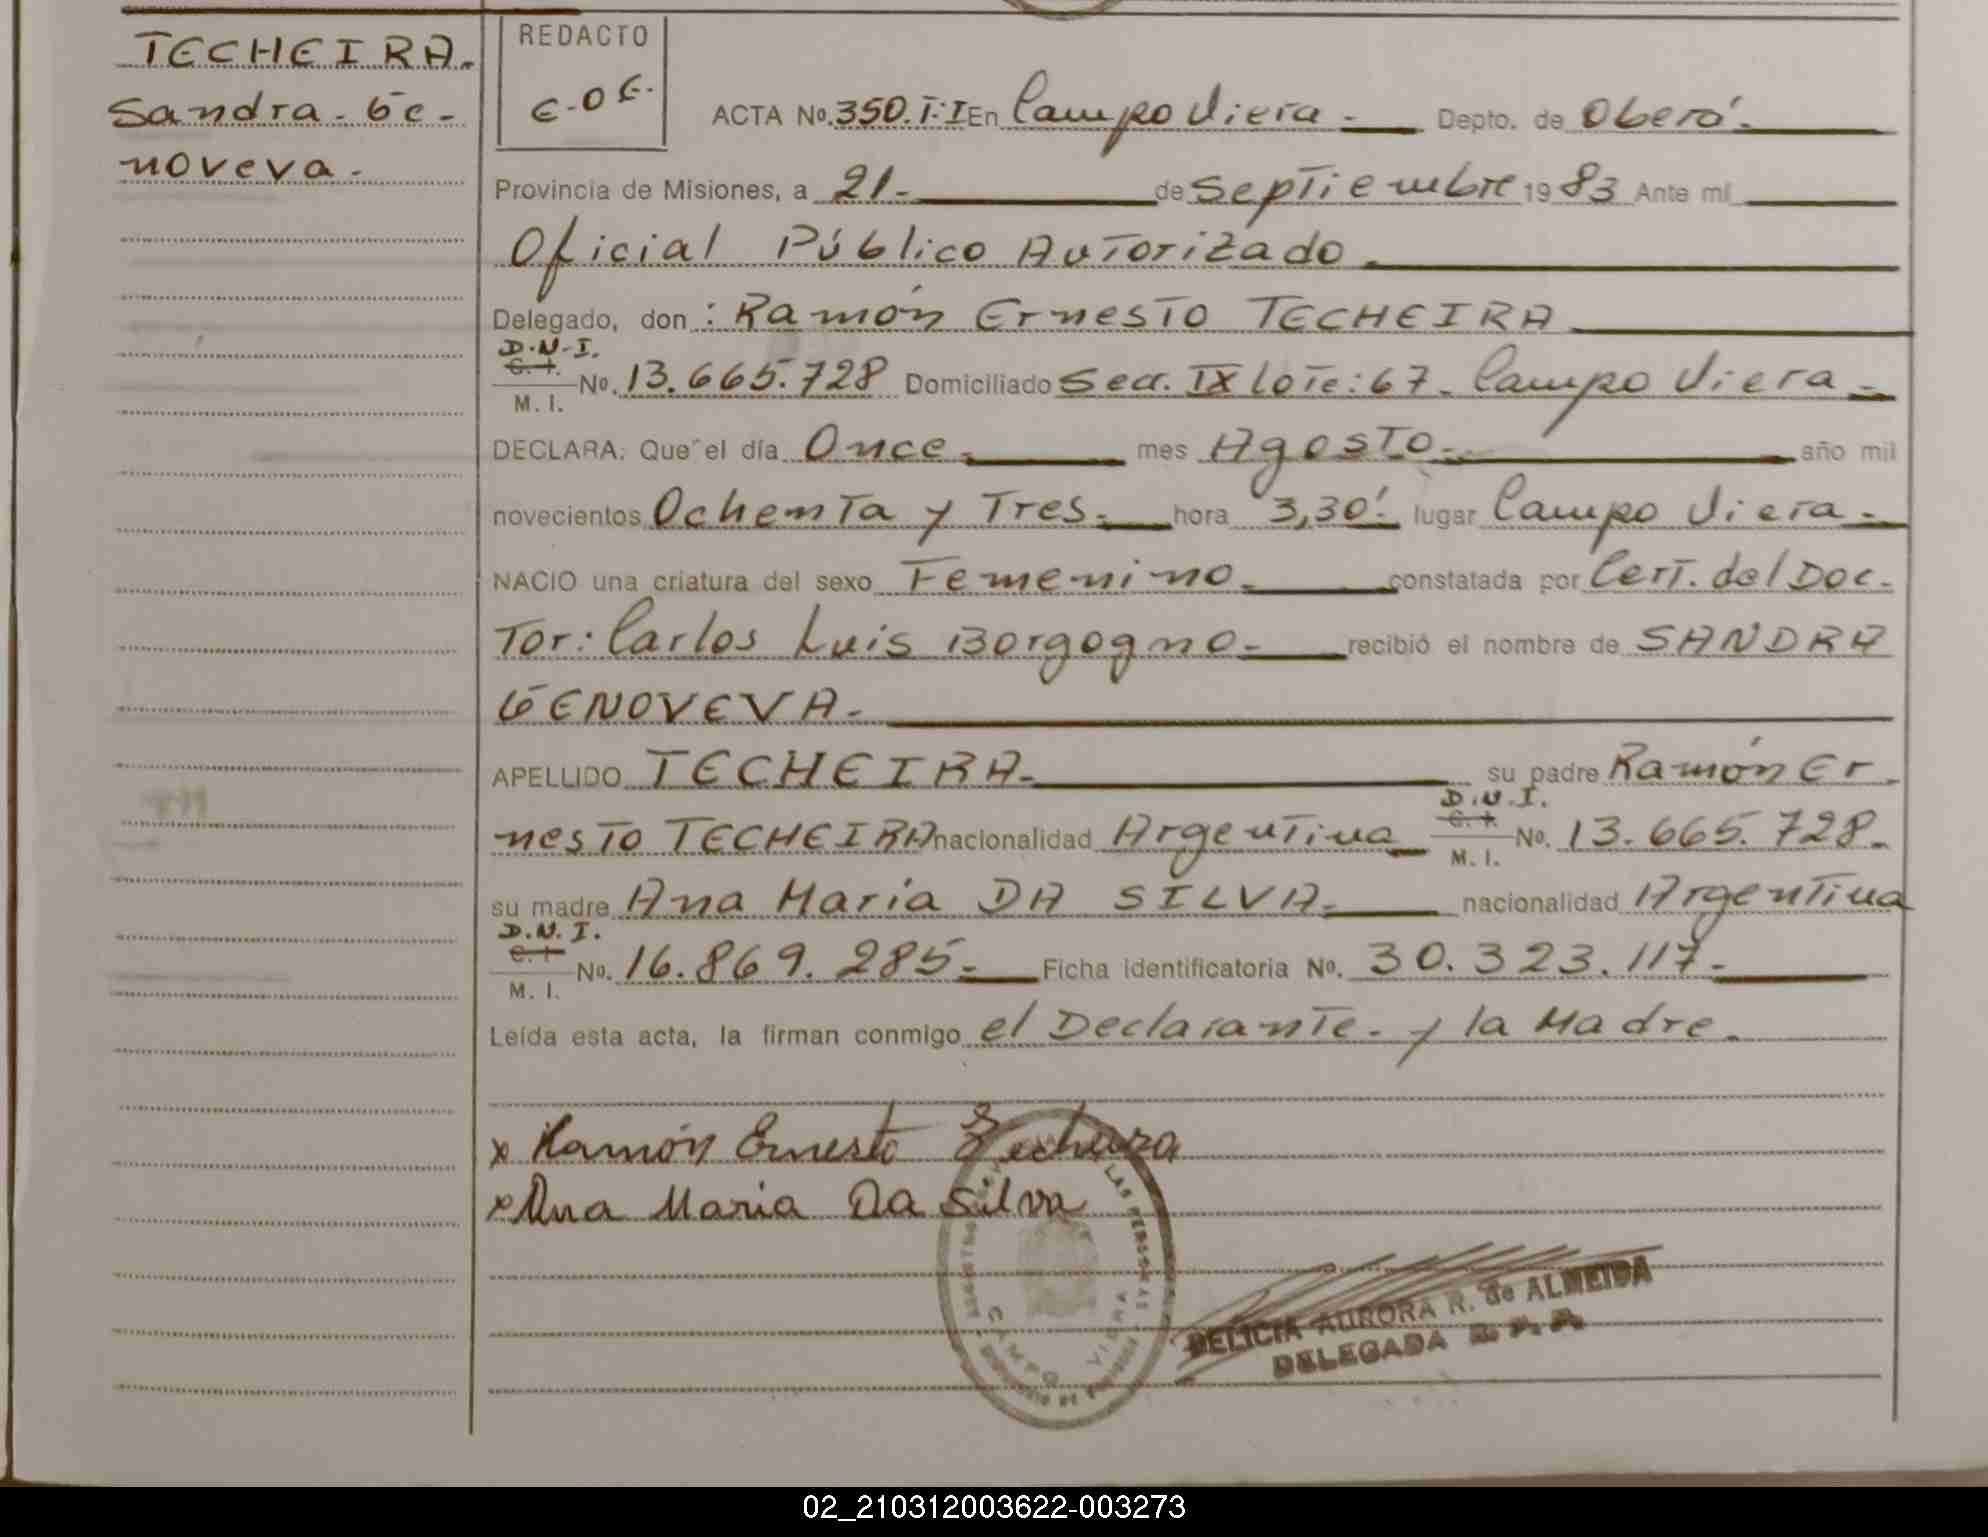 TECHEIRA.
Sandra. Ge-
noveva.
REDACTO
E.O.E.
ACTA No. 350. T:I En Campo Viera. Depto. de Oberá.
Provincia de Misiones, a 21. de Septiembre 1983 Ante mi
Oficial Público Autorizado.
Delegado, don : Ramón Ernesto TECHEIRA
D.N.I.
C. I.
M. I. No. 13.665.728 Domiciliado Secc. IX lote: 67. Campo Viera.
DECLARA: Que el día Once. mes Agosto. año mil
novecientos Ochenta y Tres. hora 3,30'. lugar Campo Viera.
NACIO una criatura del sexo Femenino. constatada por Cert. del Doc-
tor: Carlos Luis Borgogno. recibió el nombre de SANDRA
GENOVEVA.
APELLIDO TECHEIRA. su padre Ramón Er-
nesto TECHEIRA nacionalidad Argentina D.N.I. C. I. M. I. No. 13.665.728.
su madre Ana María DA SILVA. nacionalidad Argentina
D.N.I.
C. I.
M. I. No. 16.869.285. Ficha identificatoria No. 30.323.117.
Leída esta acta, la firman conmigo el Declarante. y la Madre.
x Ramón Ernesto Techeira
x Ana Maria Da Silva
LAS PERSONAS
CAMPO VIERA
DELICIA AURORA R. de ALMEIDA
DELEGADA R. P. P.
02_210312003622-003273